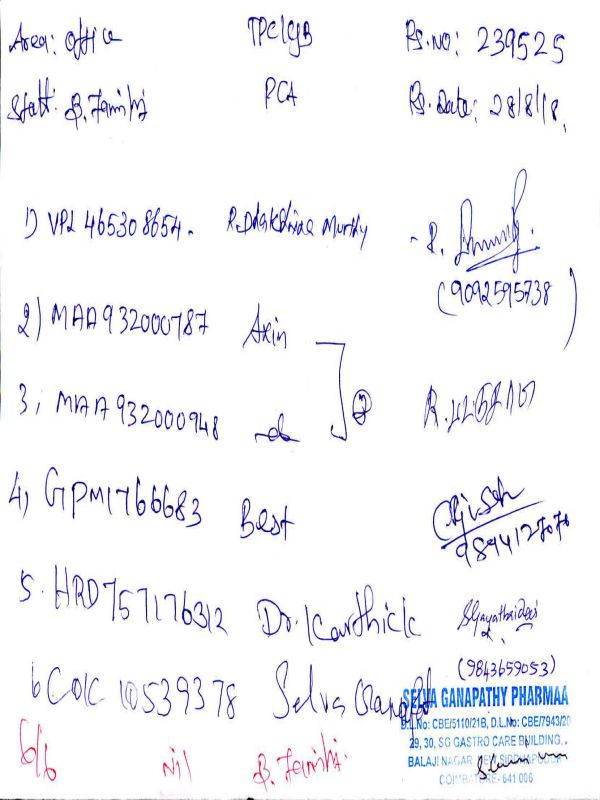 Area: Office TPC/CJB Rs.No: 239525
Staff: B. PCA Rs.Date: 28/8/18.
1) VPL 465308654 - R. Murthy - R.
(9092595738)
2) MAA932000787 Axin
3, MAA 932000948 R.
4, GPM1766683 Best
9894127070
5. HRD757176312 Dr. Karthick
(9843659053)
6 COK 10539378 Selva Ganapathy
SELVA GANAPATHY PHARMAA
D.L.No: CBE/5110/21B, D.L.No: CBE/7943/20
29, 30, SG GASTRO CARE BUILDING,
BALAJI NAGAR
COIMBATORE- 641 006
6/6 Nil B.